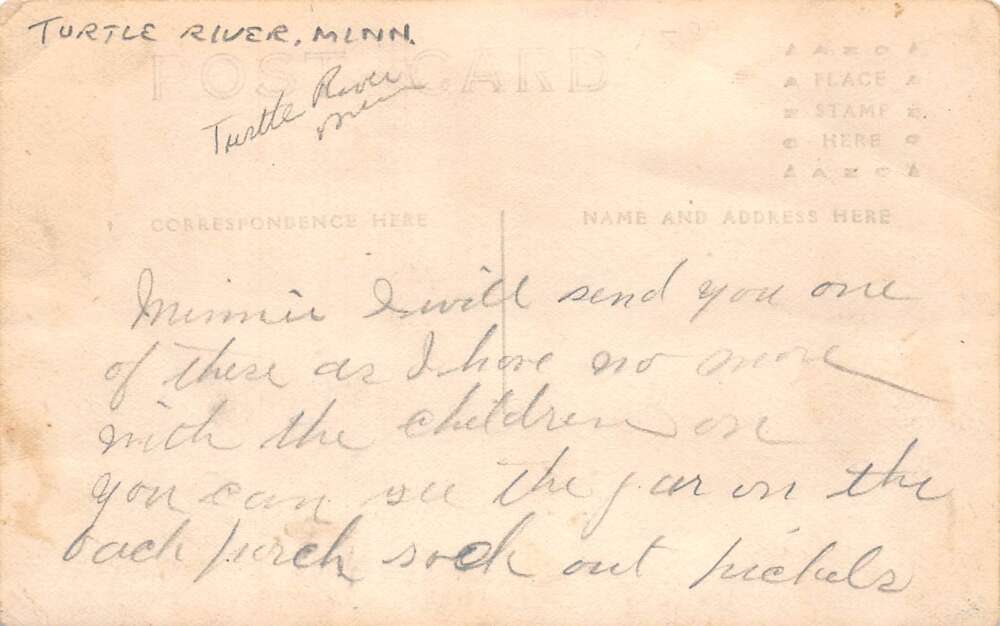 TURTLE RIVER, MINN.
POST CARD
Turtle River
Minn
AZO
PLACE
STAMP
HERE
AZO
CORRESPONDENCE HERE
NAME AND ADDRESS HERE
Minnie I will send you one
of these as I have no more
with the children on
you can see the jar on the
back porch sock out pickels